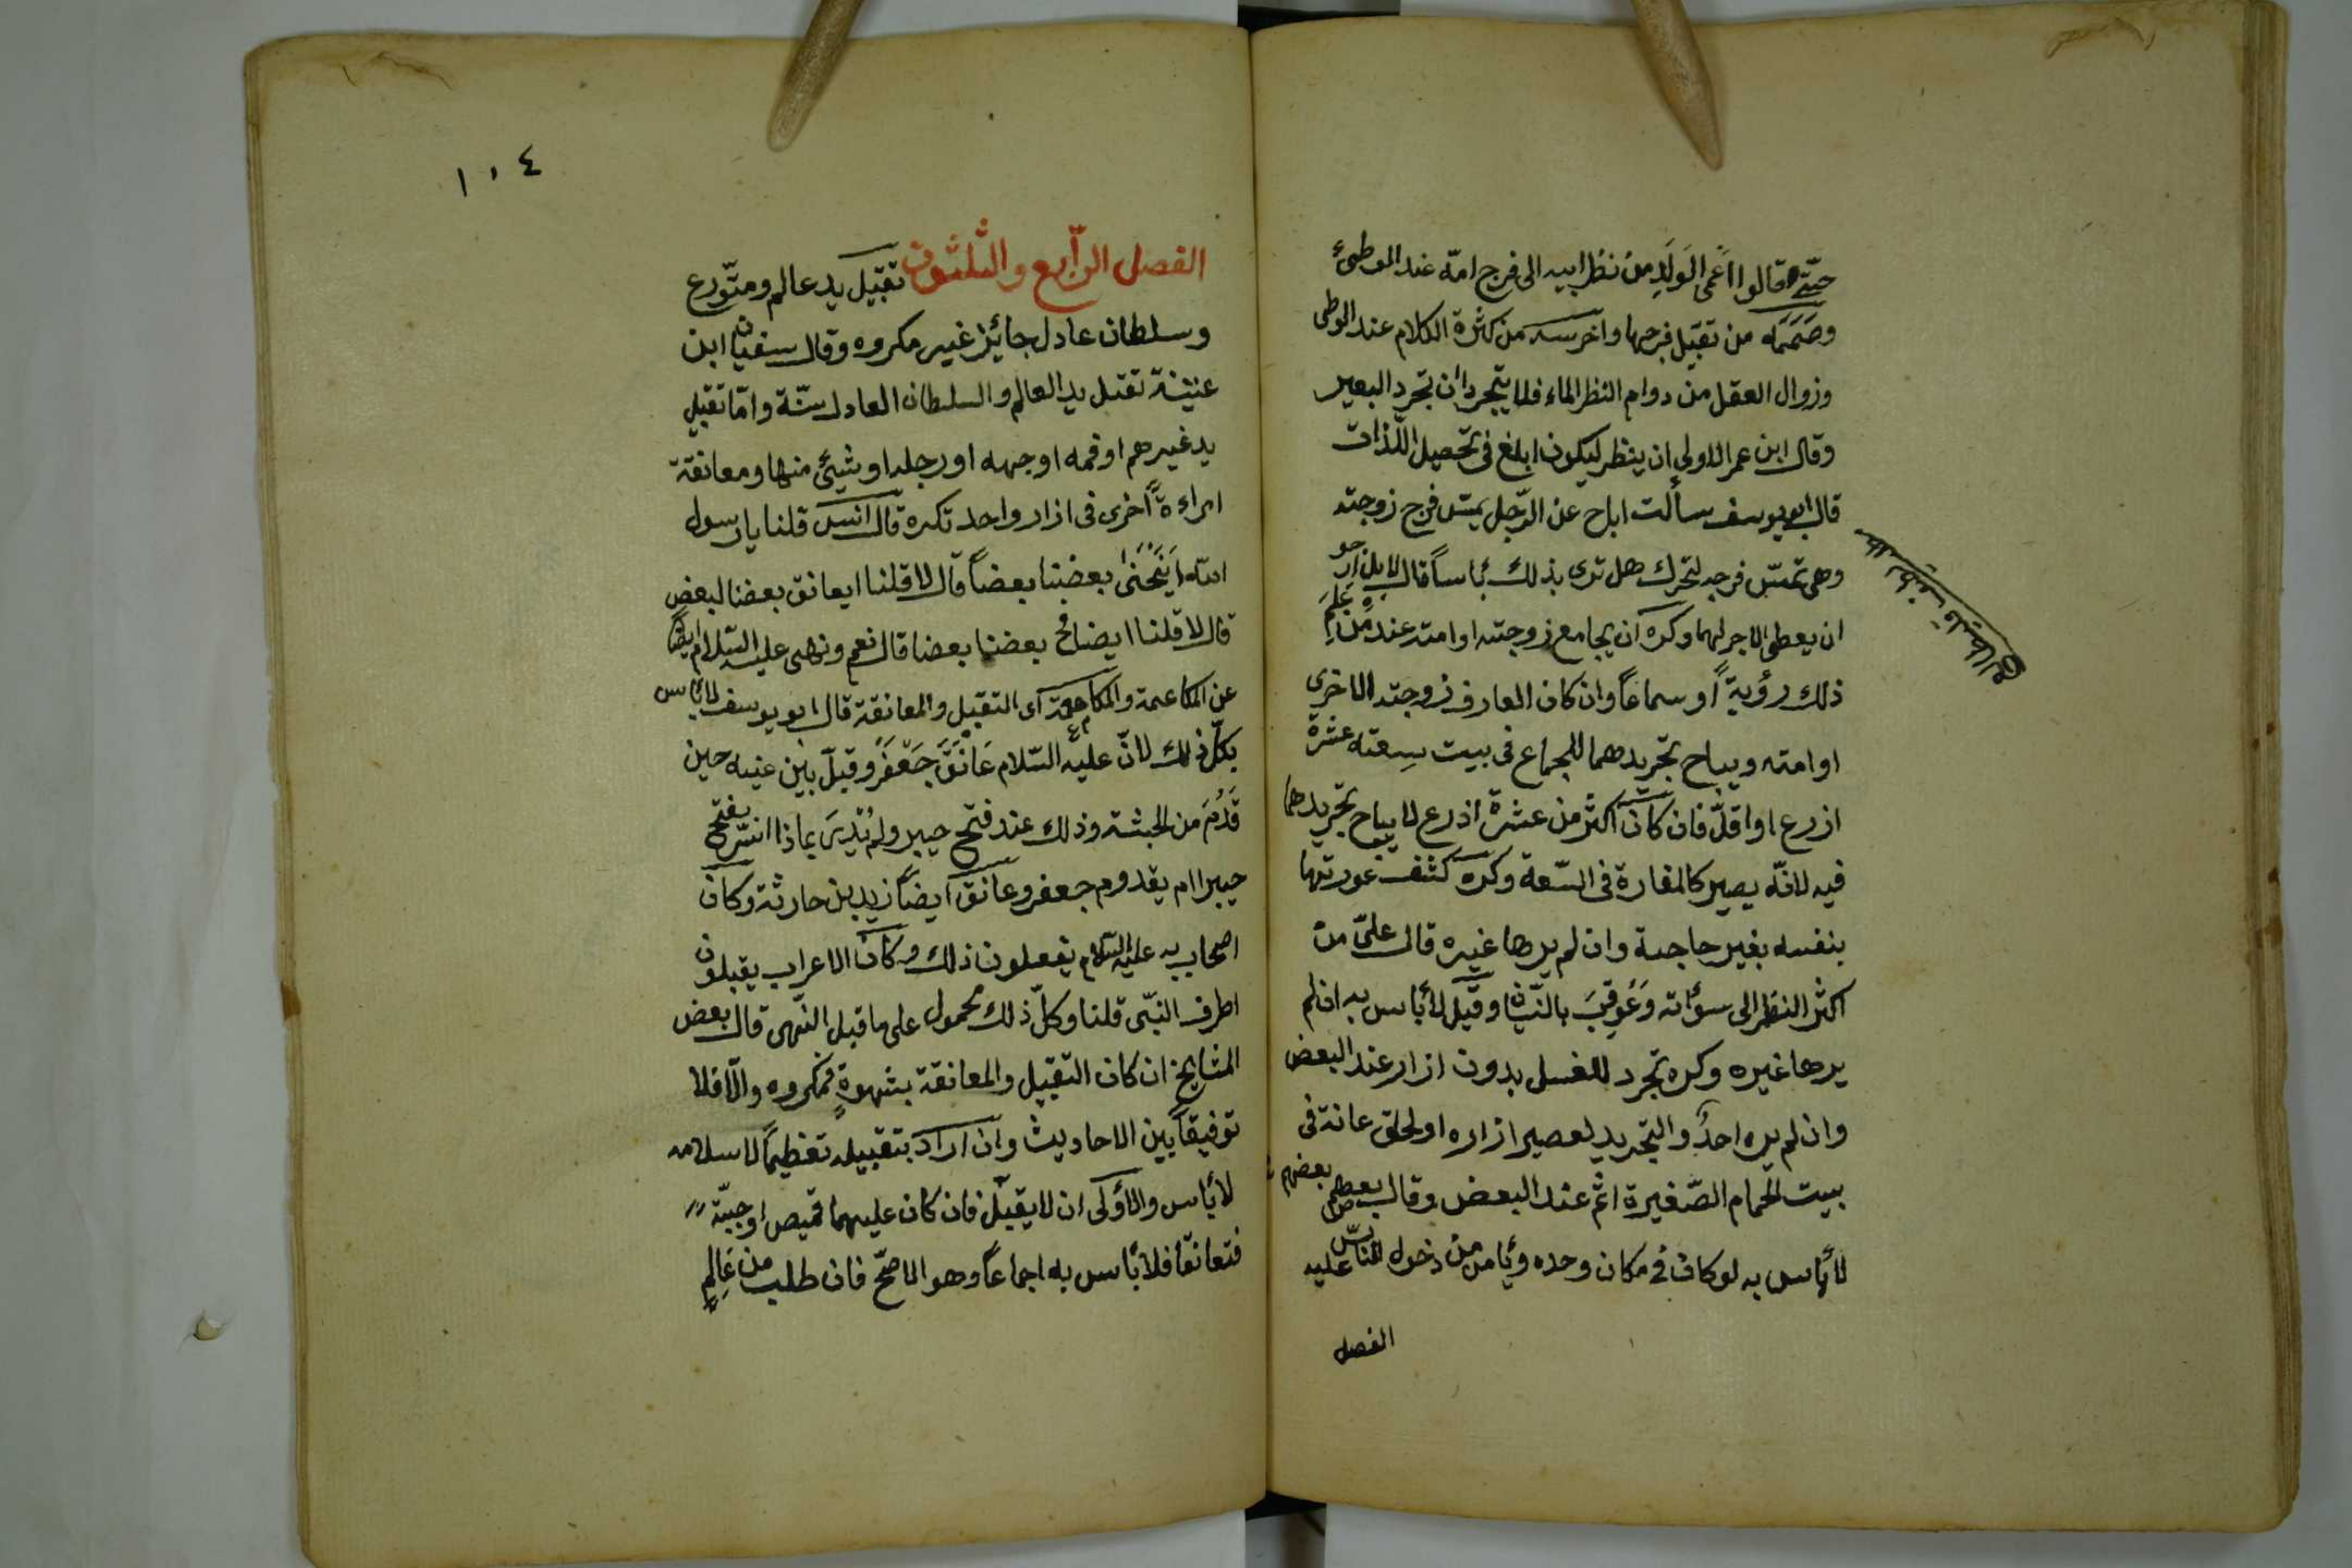 حتّى قالوا اعمى الوَلَدِ من نظر ابيه الى فرج امّه عند الموطئ
وصَمَمَه من تقبيل فرجها واخرسه من كثرة الكلام عند الوطى
وزوال العقل من دوام النظر الماء فلا يتجردان تجرد البعير
وقال ابن عمر الاولى ان ينظر ليكون ابلغ فى تحصيل اللّذات
قال ابو يوسف سألت اباح عن الرّجل يمسّ فرج زوجته
وهى تمسّ فرجه لتحرك هل ترى بذلك بٔاساً قال لا بل ارجو
ان يعطى الاجر لهما وكره ان يجامع زوجته او امته عند من عَلِمَ
ذلك رؤيةً او سماعاً وان كان العارف زوجته الاخرى
او امته ويباح تجريدهما للجماع فى بيت سِعته عشرة
ازرع او اقلّ فان كان اكثر من عشرة اذرع لا يباح تجريدهما
فيه لانّه يصير كالمفارة فى السّعة وكره كشف عورتها
بنفسه بغير حاجة وان لم يرها غيره قال علىّ من
اكثر النظر الى سوٰاته وَعُوقِبَ بالنّسيان وقيل لا بٔاس به ان لم
يرها غيره وكره تجرد للغسل بدون ازار عند البعض
وان لم يره احدٌ والتجريد لعصير ازاره او لحلق عانة فى
بيت الحمام الصّغيرة اثم عند البعض وقال بعضهم
لا بٔاس به لو كان فى مكان وحده وئامن من دخول النّاس عليه
الفصل
١٠٤
الفصل الرّابع والثلثون تقبيل يد عالم ومتّورع
وسلطان عادل جائز غير مكروه وقال سفيان ابن
عنينة تقبل يد العالم والسلطان العادل سنّة وامّا تقبيل
يد غيرهم او فمه او جهه او رجله او شيئ منها ومعانقة
امراءة اخرى فى ازار واحد تكره قال انس قلنا يا رسول
الله اَيَنْحَنى بعضنا بعضاً قال لا قلنا ايعانق بعضنا لبعض
قال لا قلنا ايصافح بعضنا بعضا قال نعم ونهى عليه السّلام ايضاً
عن المكاعمة والمكامعة اى التقبيل والمعانقة قال ابو يوسف لا بٔاس
بكلّ ذلك لانّ عليه السّلام عَانَقَ جَعْفَرَ وقبل بين عنيه حين
قَدُمَ من الحبشة وذلك عند فتح حيبر ولم يُدْرَ بماذا انسّر بفتح
حيبر ام يقدوم جعفر وعانق ايضاً زيد بن حارثة وكان
اصحابه عليه السّلام يفعلون ذلك وكان الاعراب يقبلون
اطرف النبّى قلنا وكلّ ذلك محمول على ما قبل النّهى قال بعض
المشايخ ان كان التقبيل والمعانقة بشهوةٍ فمكروه والّا فلا
توفيقاً بين الاحاديث وان اراد بتقبيله تعظيماً لاسلامه
لا بٔاس والاولى ان لا يقبّل فان كان عليهما قميص او جبّة
فتعانقا فلا بٔاس به اجماعاً وهو الاصحّ فان طلب من عَالِمٍ